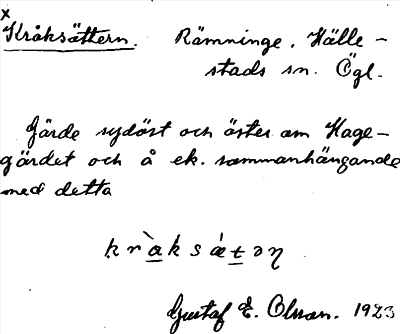 x
Kråksättern. Rämninge. Hälle-
stads sn. Ögl.
Gärde sydöst och öster om Hage-
gärdet och å ek. sammanhängande
med detta
Gustaf E. Olsson. 1923